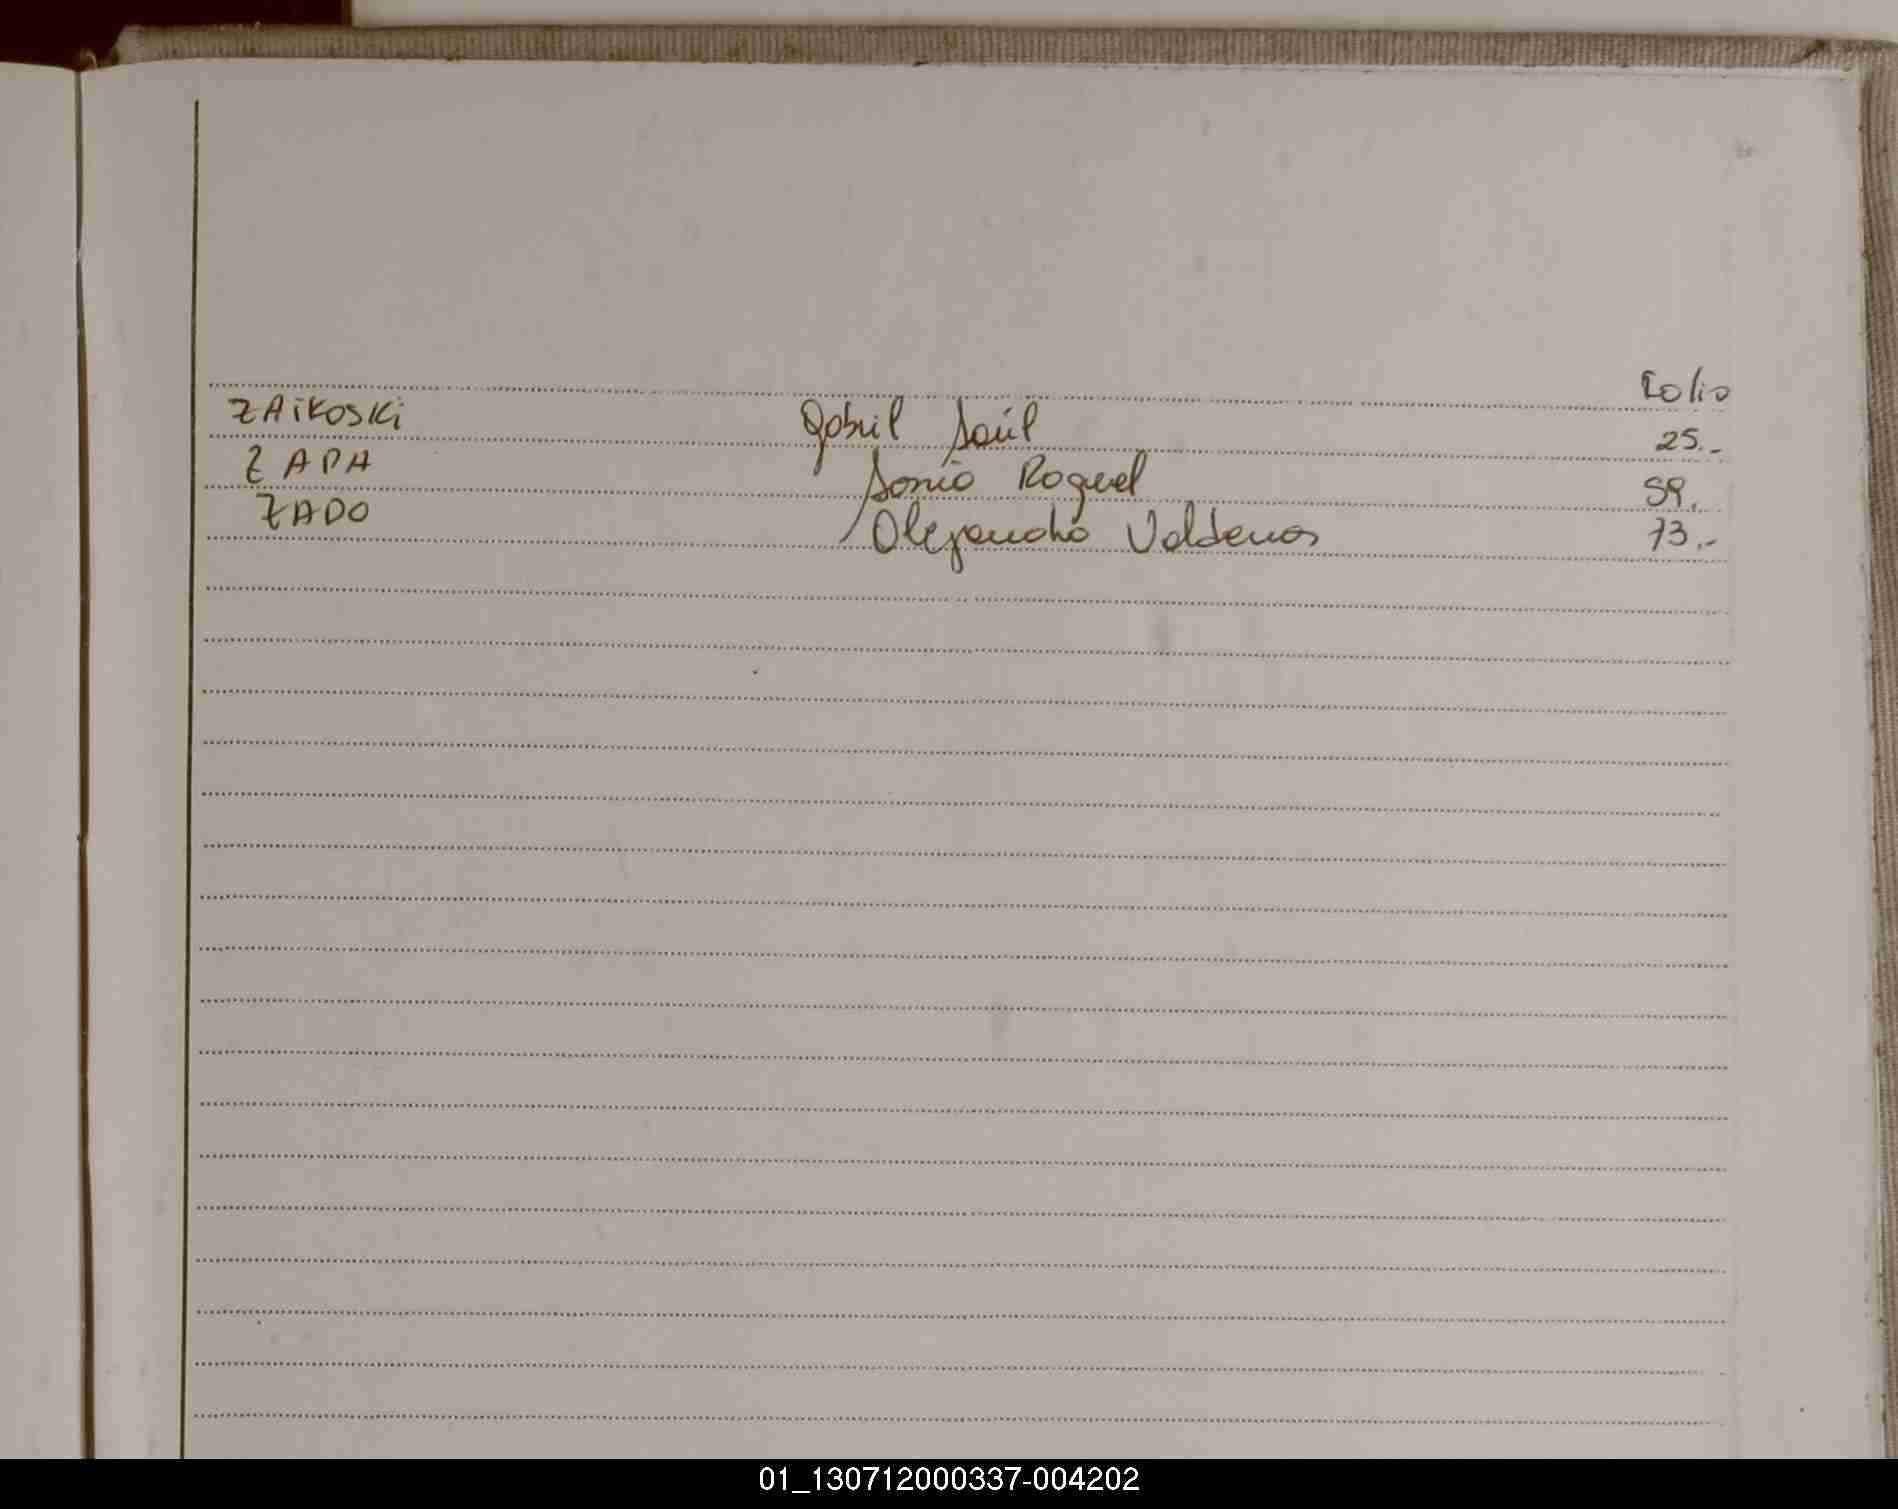 Folio
ZAiKOSKi Gabriel Saúl 25.-
ZAPA Sonia Raquel 59.
ZADO Alejandro Valdemar 73.-
01_130712000337-004202